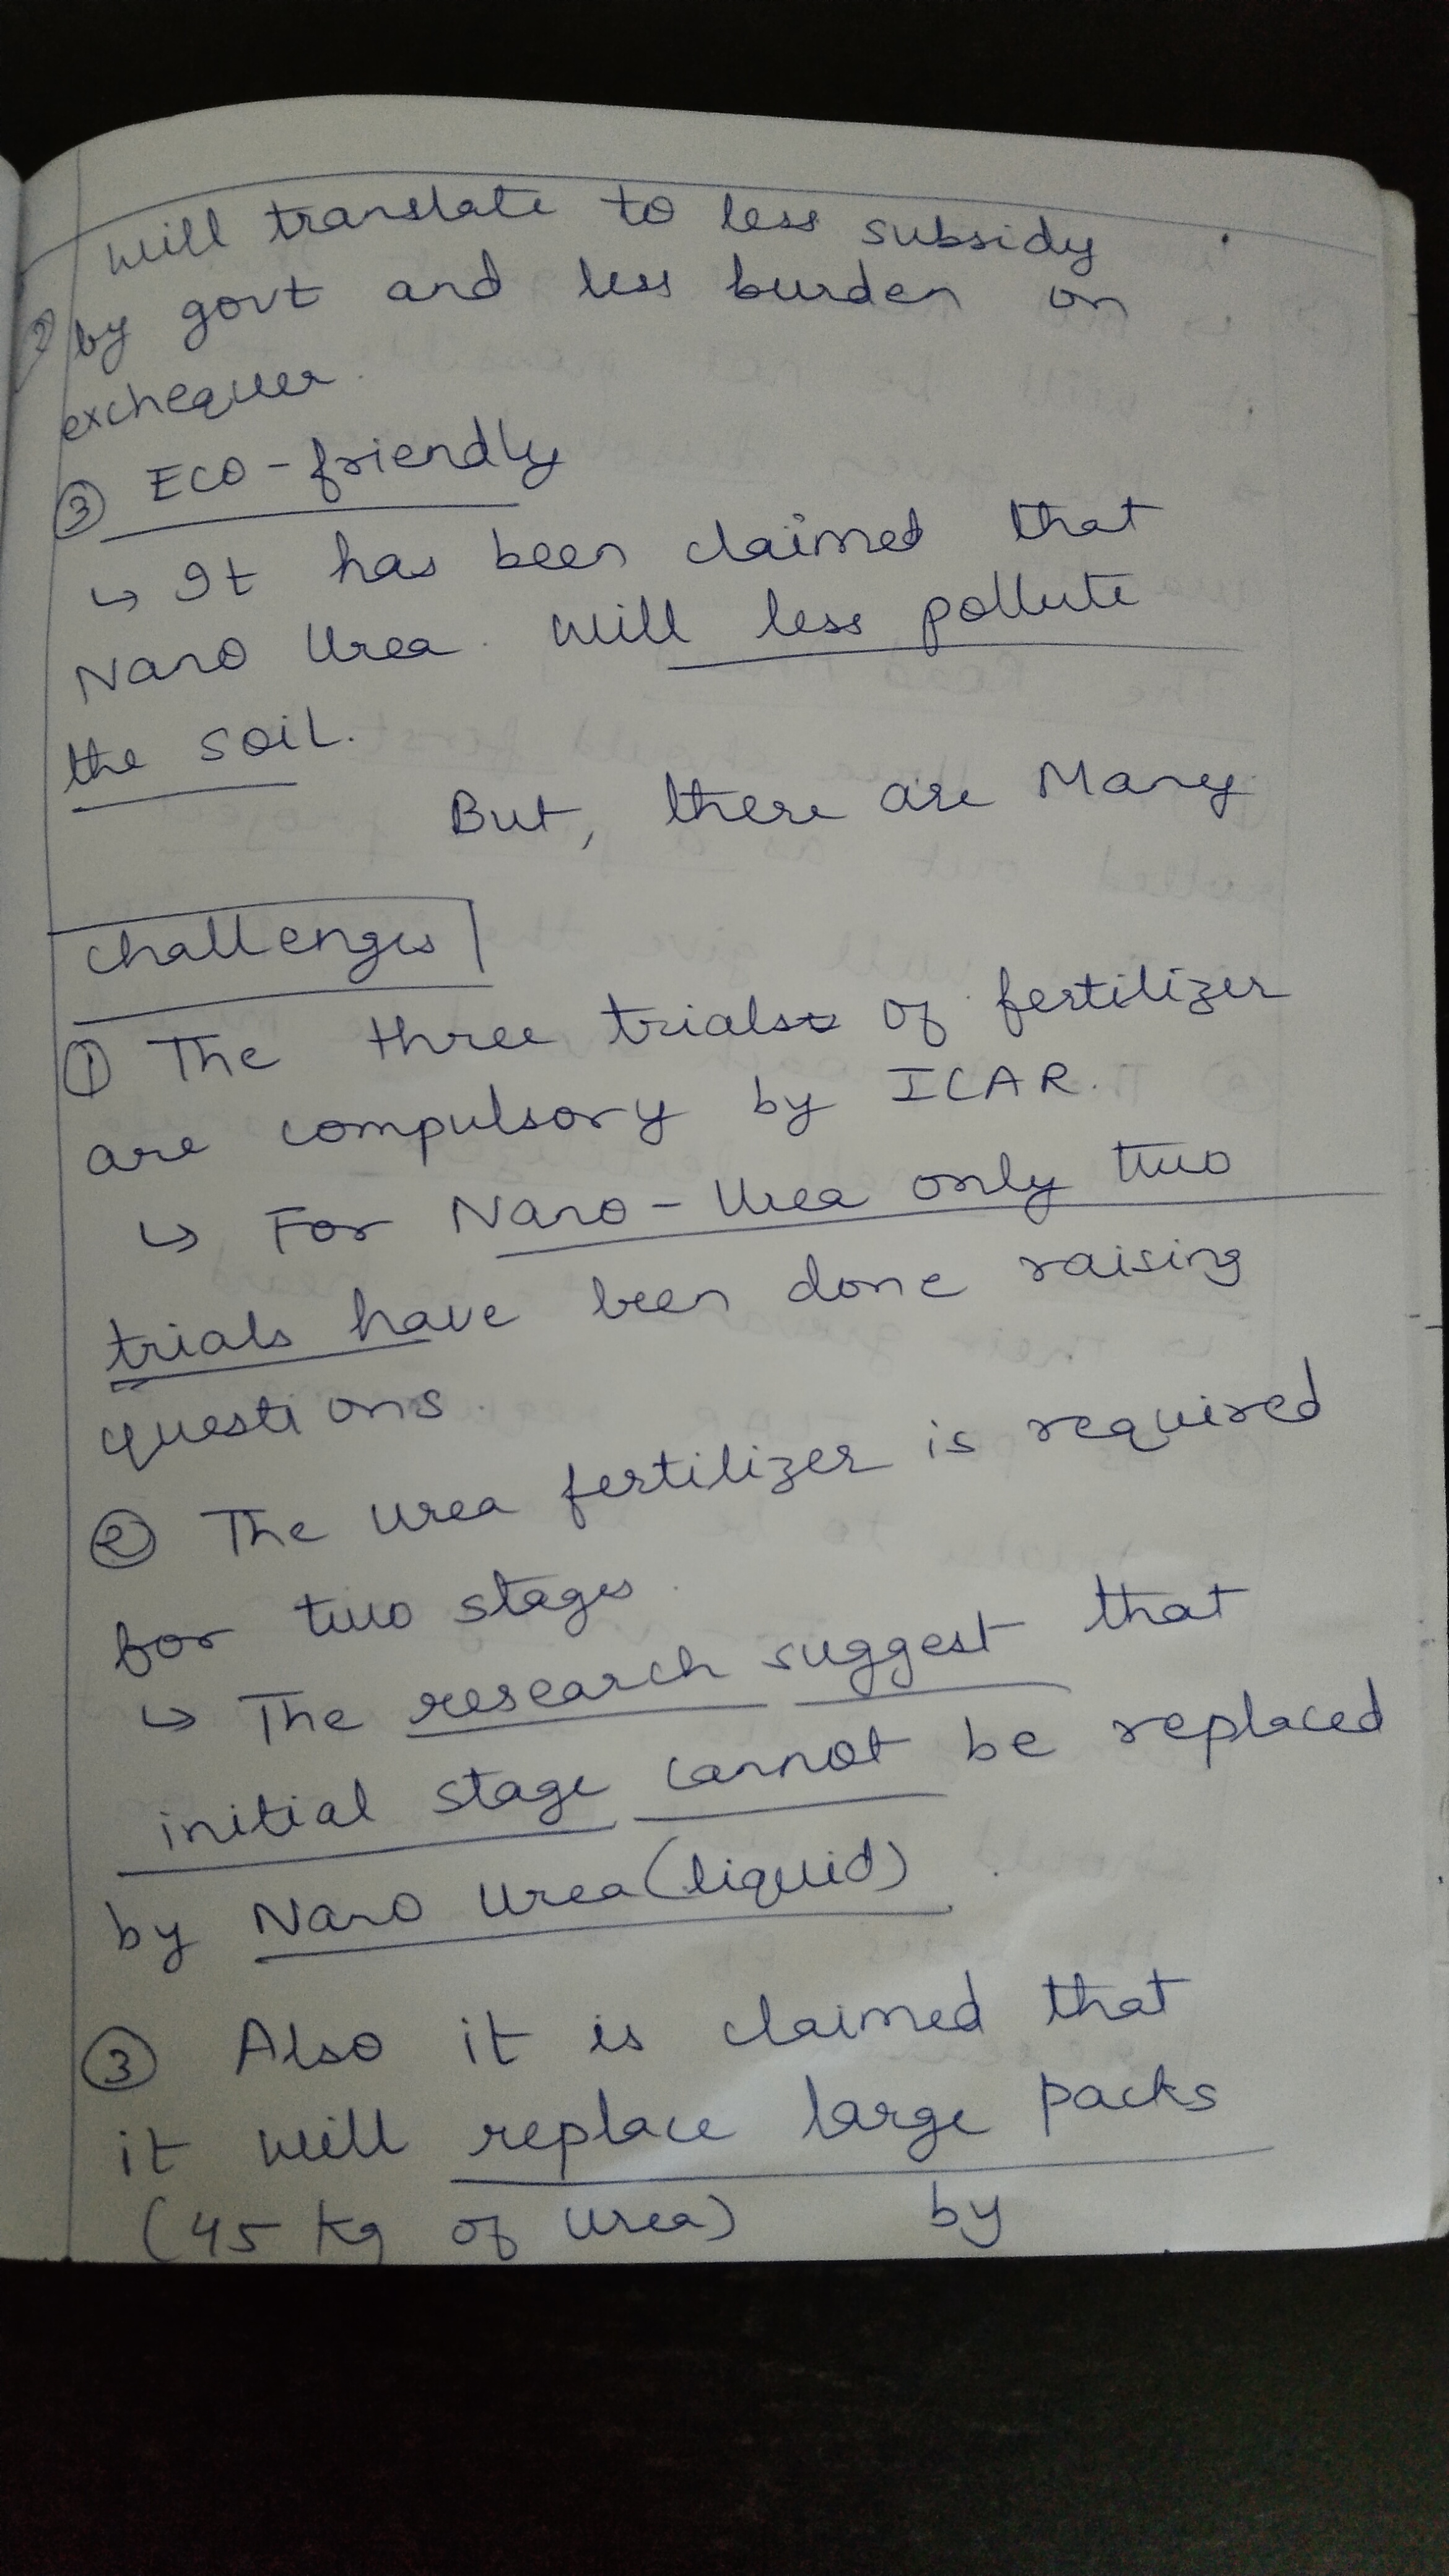 will translate to less subsidy
by govt and less burden on
exchequer.
③ ECO-friendly
↳ It has been claimed that
Nano Urea will less pollute
the soil.
But, there are Many
challenges
① The three trials of fertilizer
are compulsory by ICAR.
↳ For Nano-Urea only two
trials have been done raising
questions.
② The urea fertilizer is required
for two stages.
↳ The research suggest that
initial stage cannot be replaced
by Nano Urea (liquid)
③ Also it is claimed that
it will replace large packs
(45 kg of urea) by